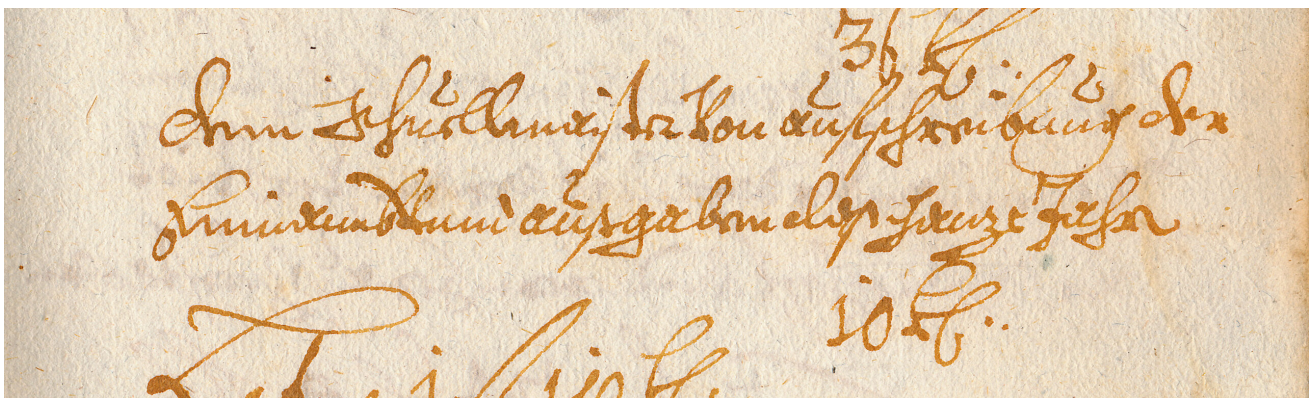 36 xr
dem Schuellmaister von aufschreibung der
Einnamb vnd ausgaben des gantze Jahr
10 ß.